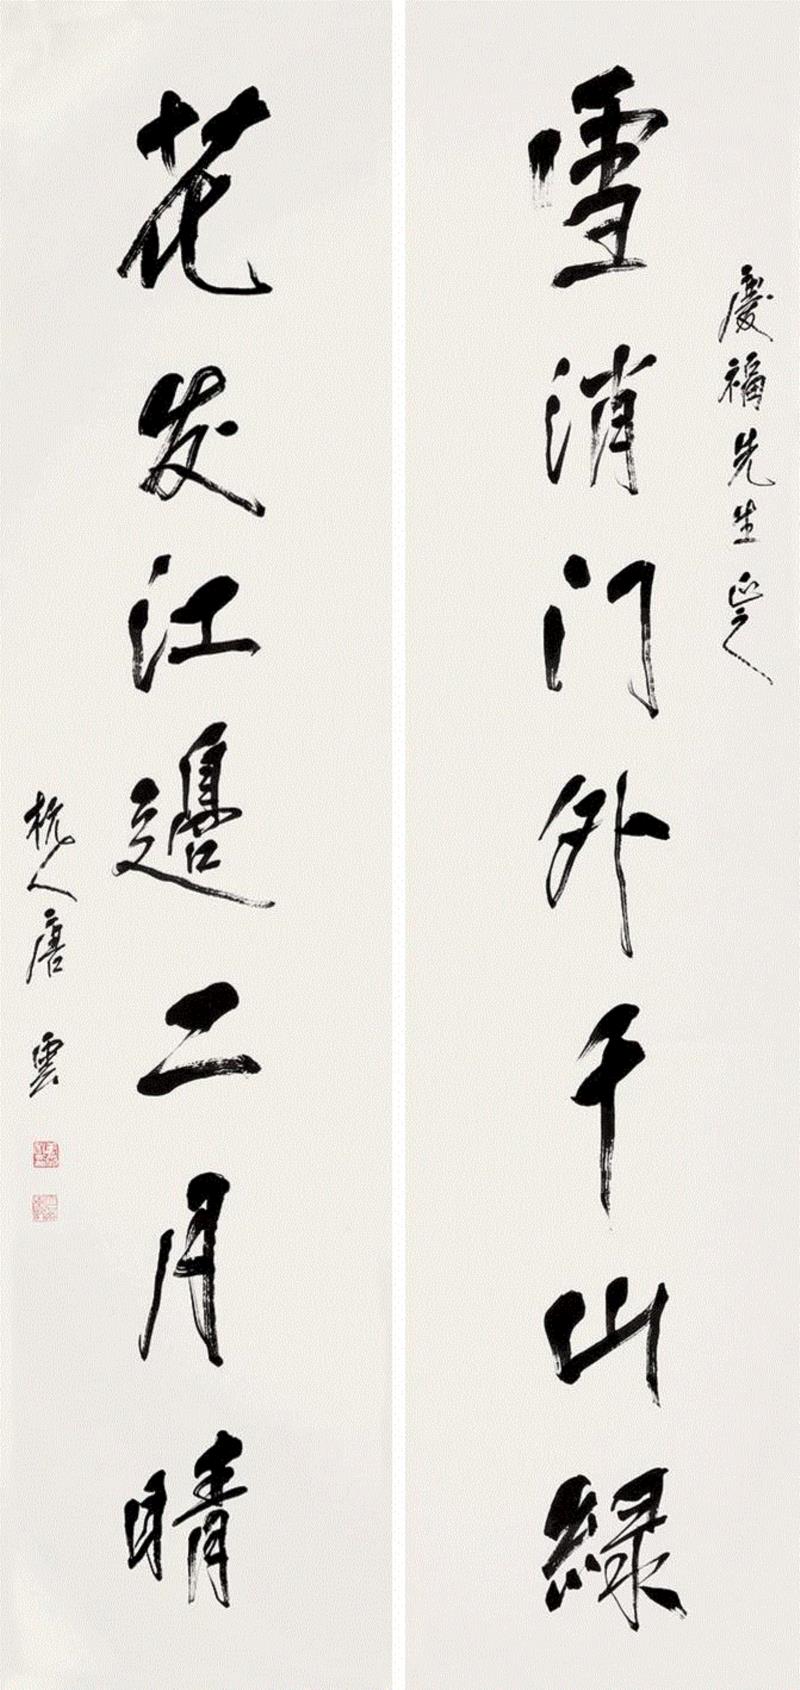 慶福先生正之
雪消门外千山緑
花发江邊二月晴
杭人唐雲